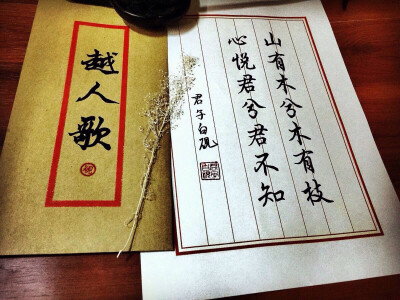 越人歌
山有木兮木有枝
心悦君兮君不知
君午白砚